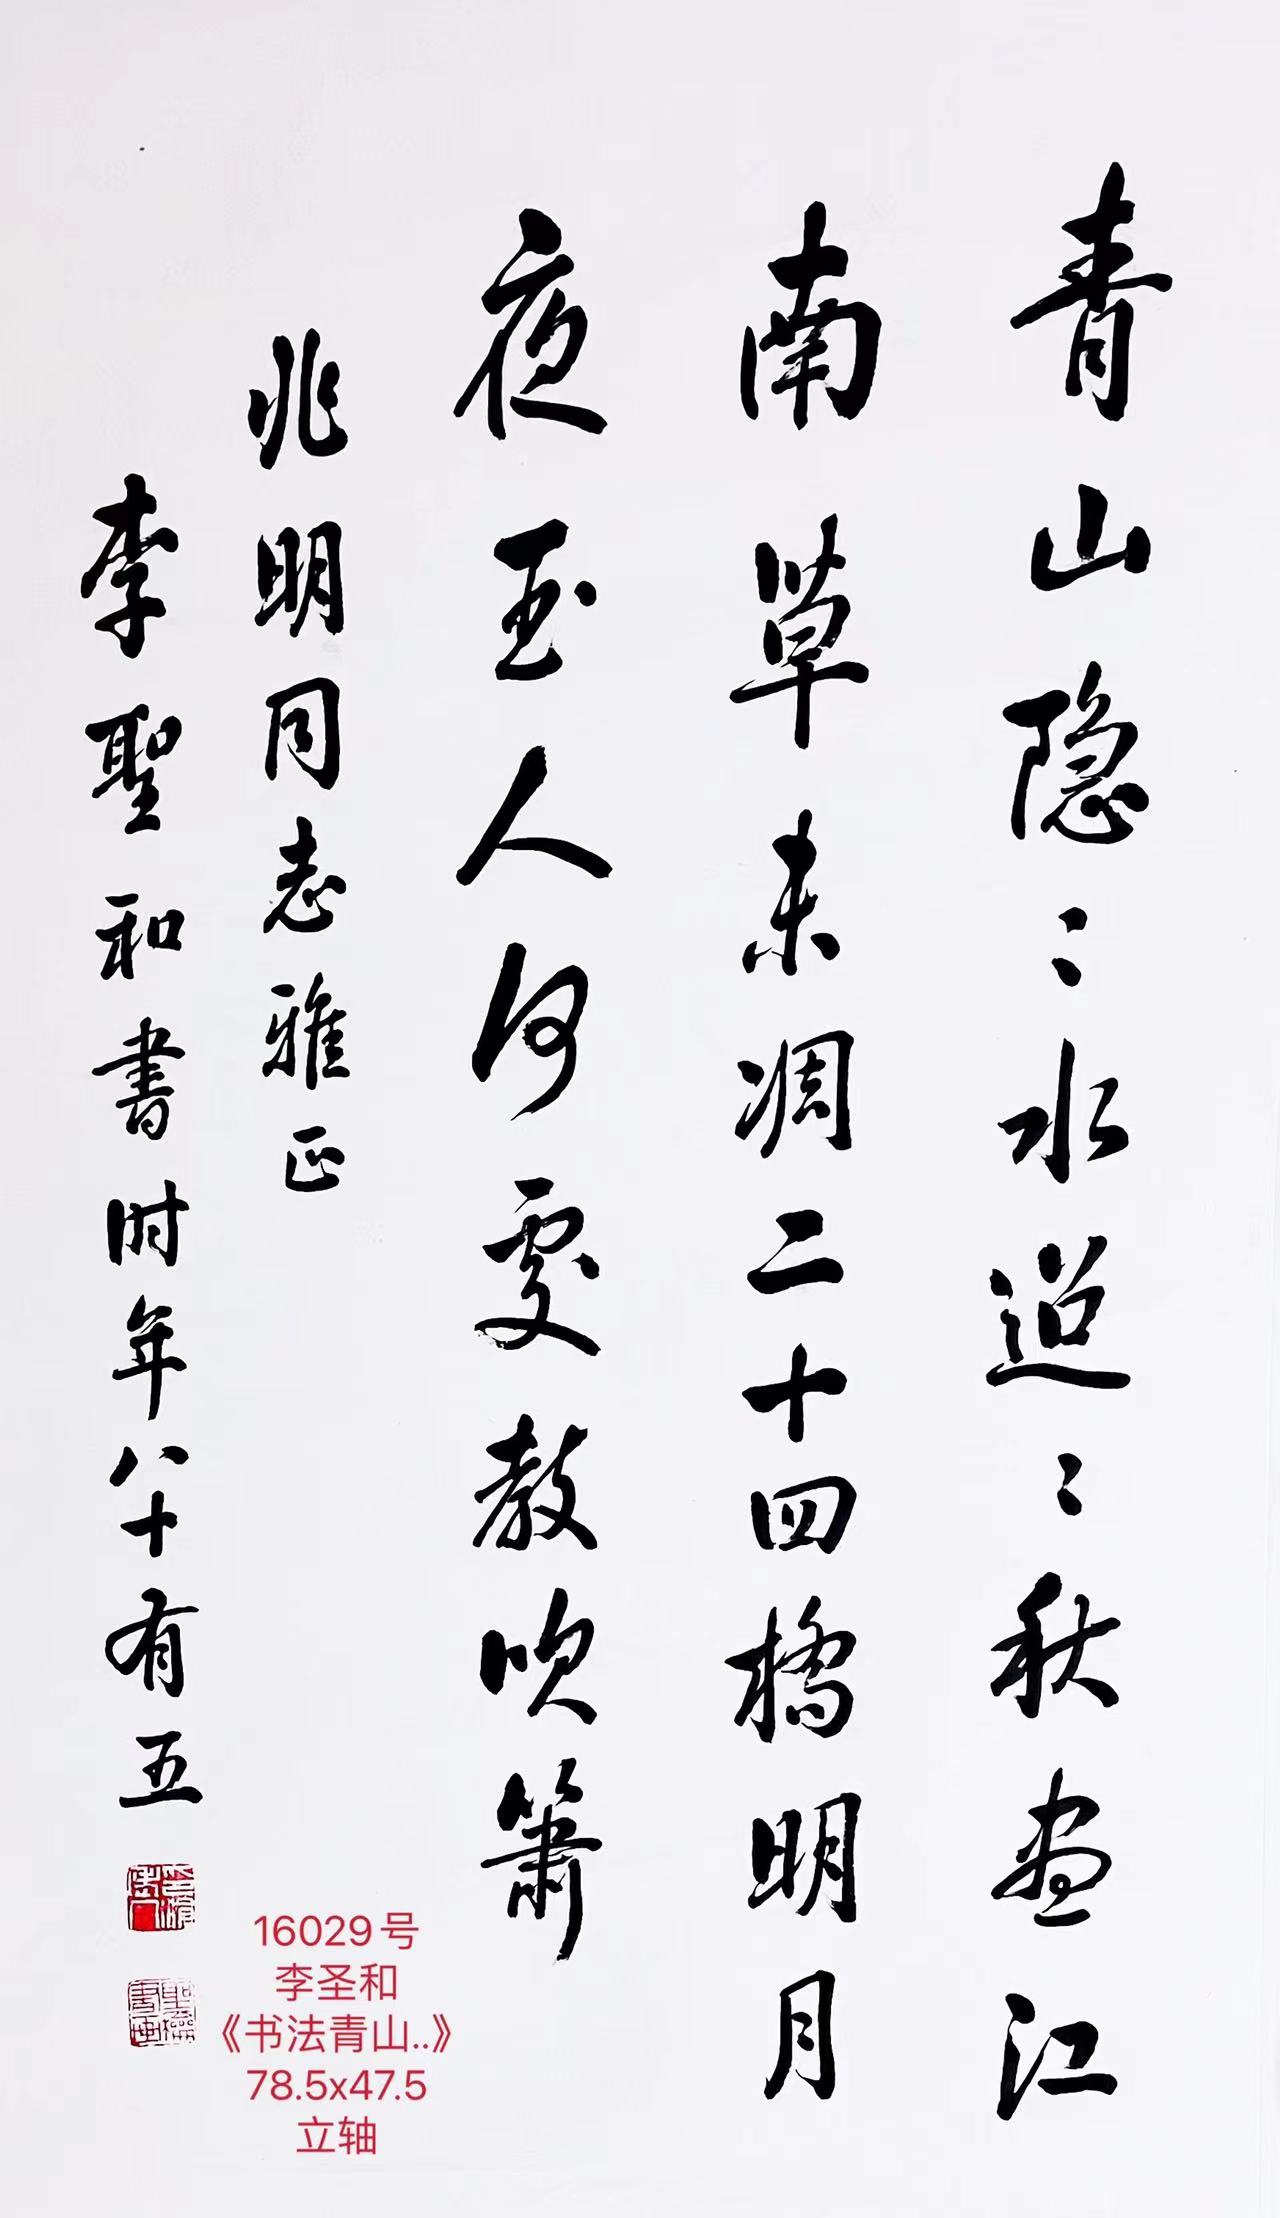 青山隐〻水迢〻秋尽江
南草未凋二十四橋明月
夜玉人何處教吹箫
兆明同志雅正
李聖和書时年八十有五
16029号
李圣和
《书法青山..》
78.5x47.5
立轴